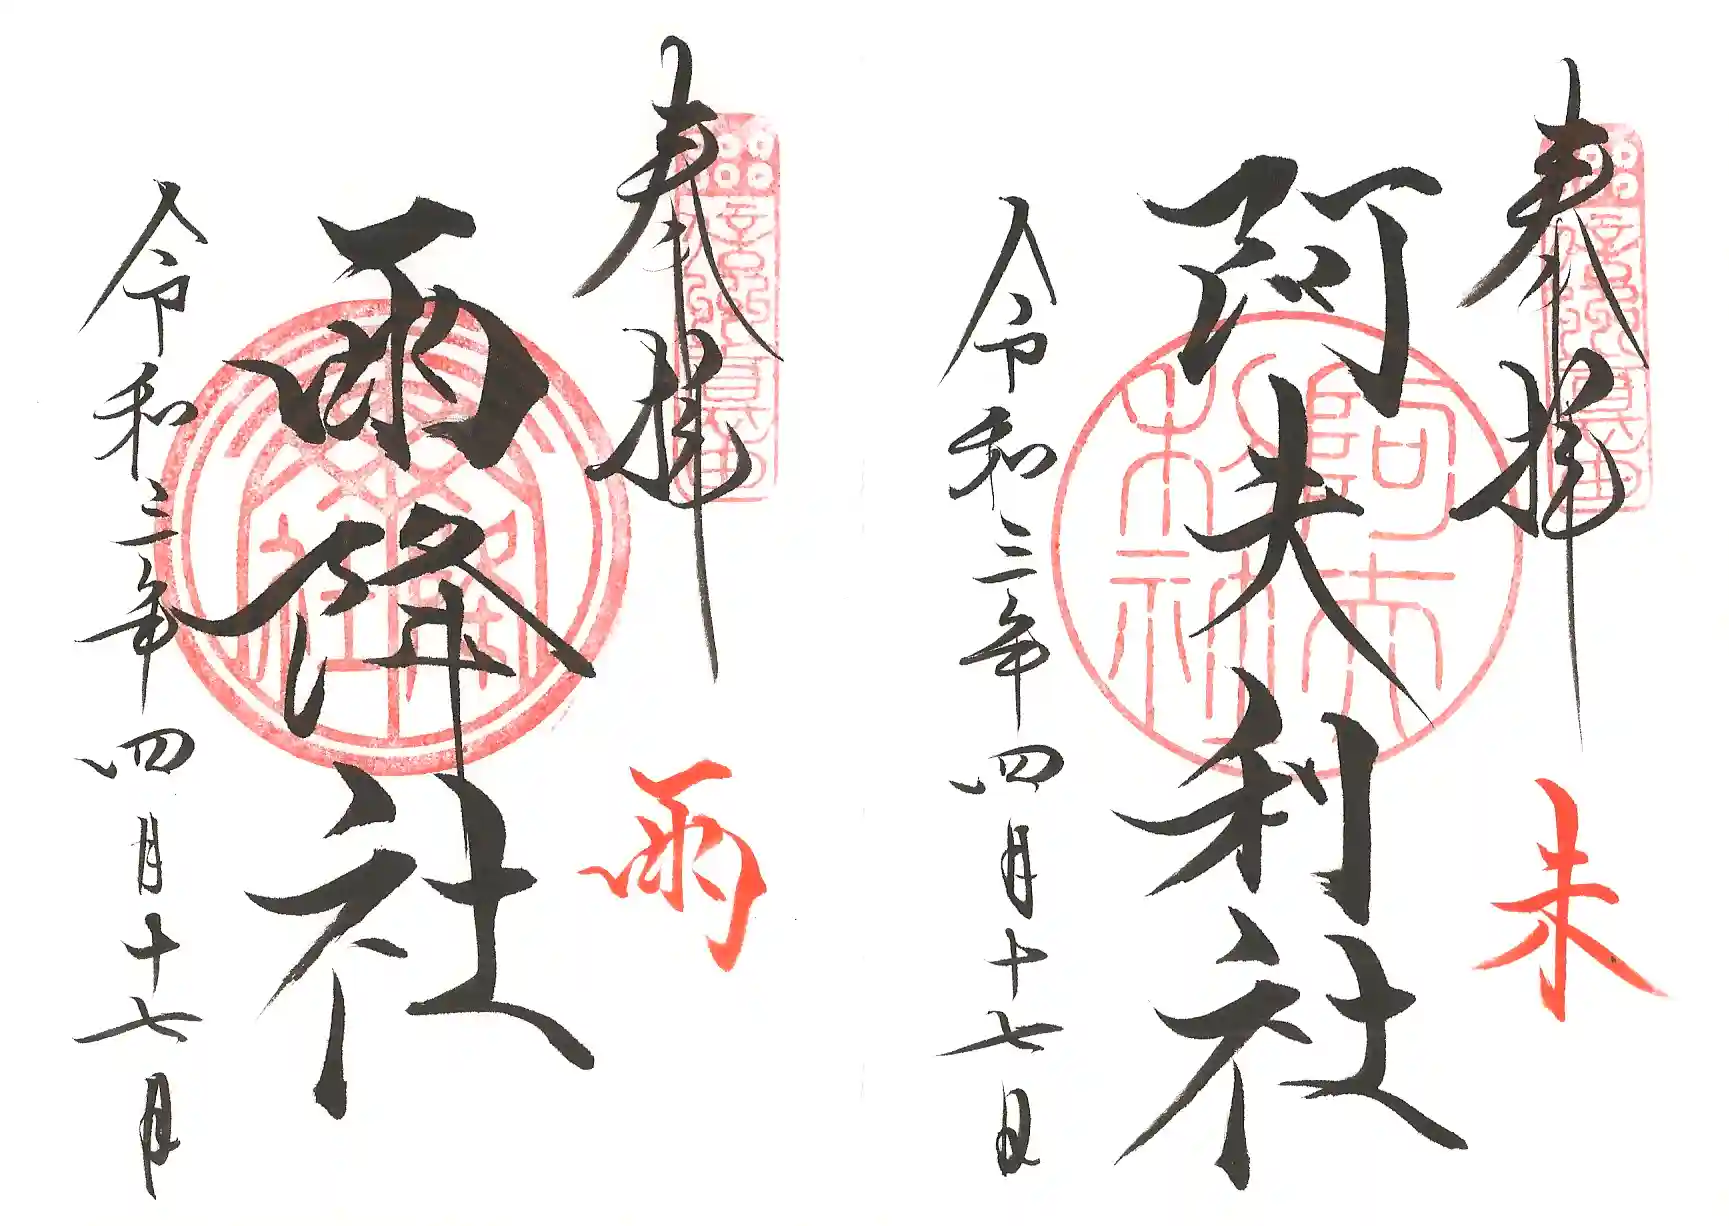 奉拝
阿夫利社
阿夫利社
未
令和三年四月十七日
奉拝
雨降社
雨
令和三年四月十七日